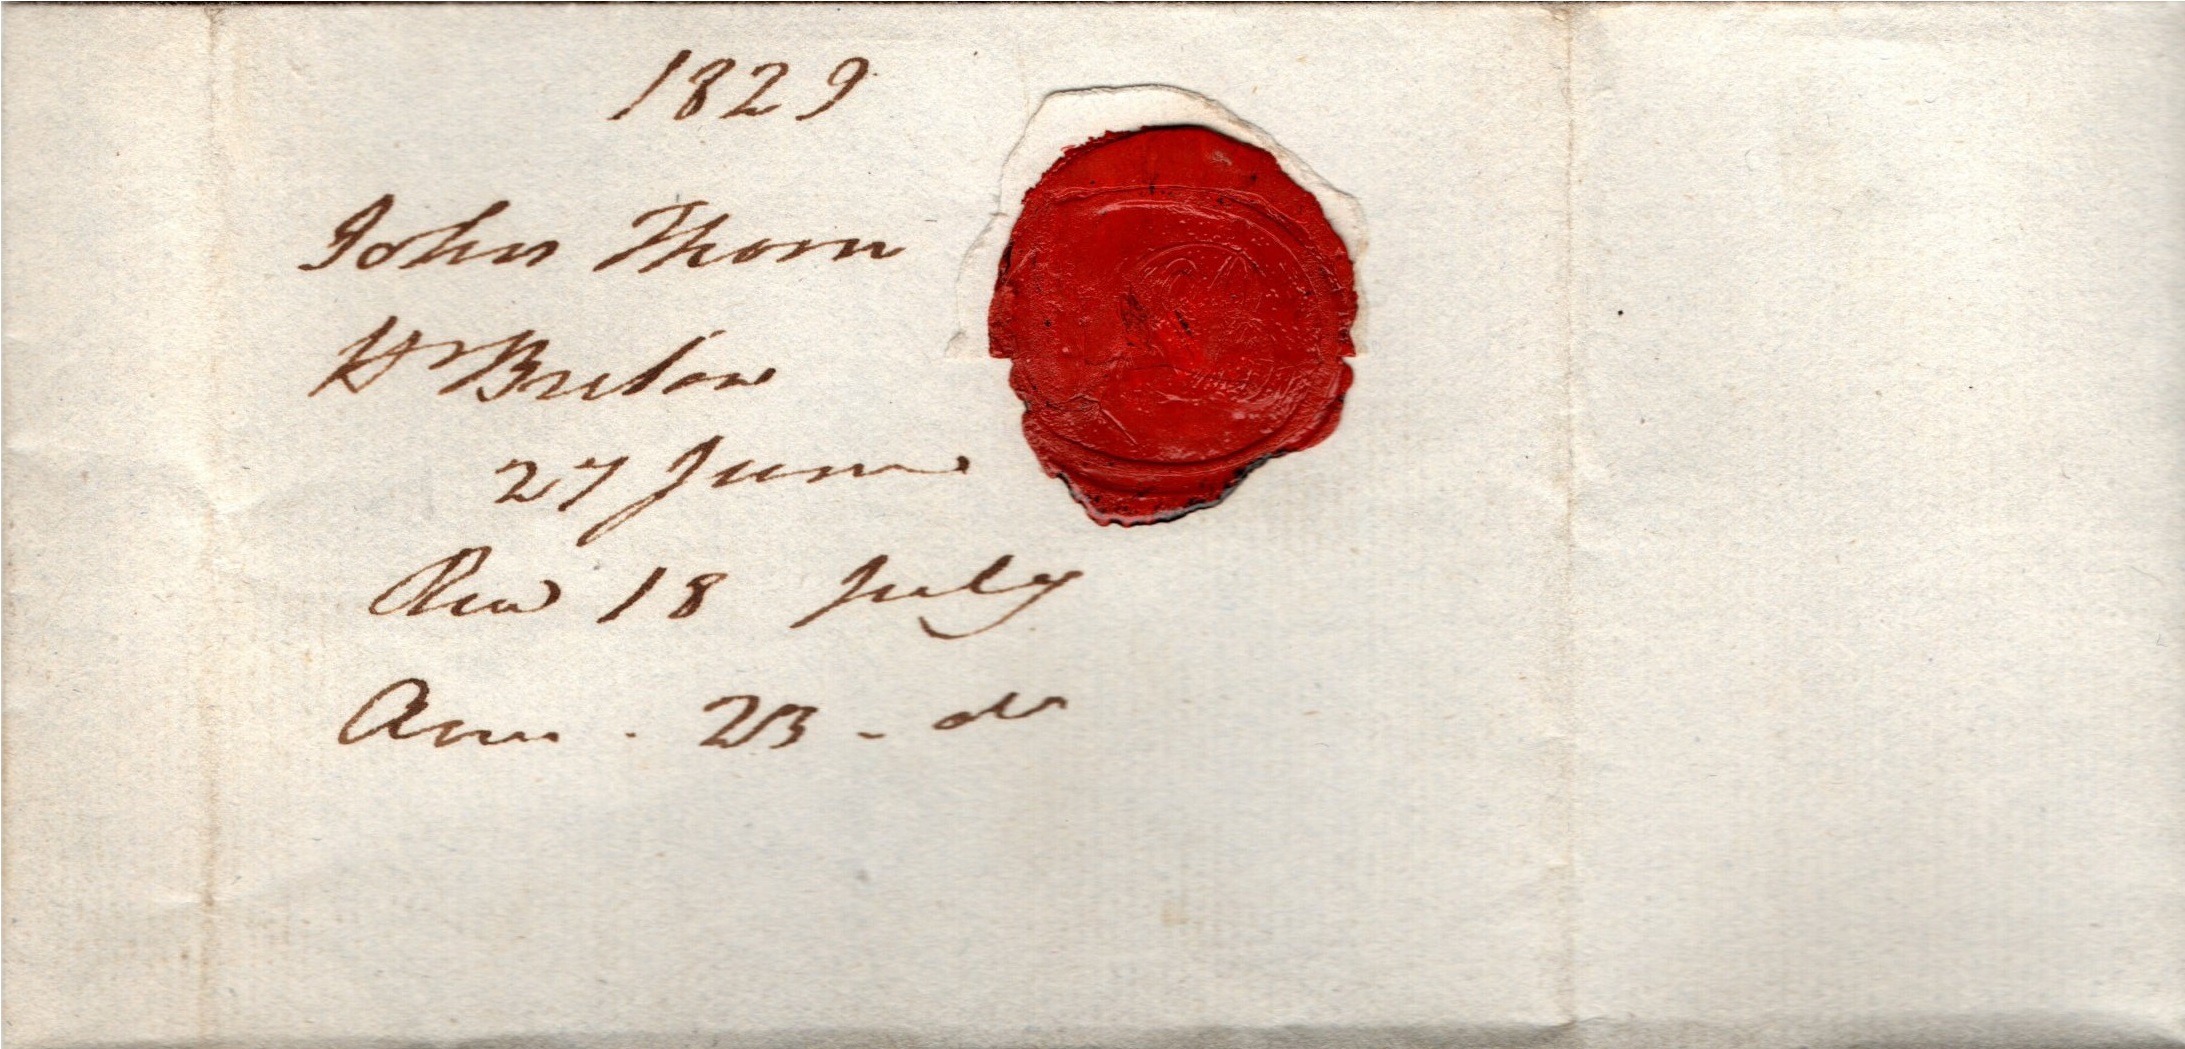 1829
John Thorn
Hr Breton
27 June
Recd 18 July
Ansr. 23 - do